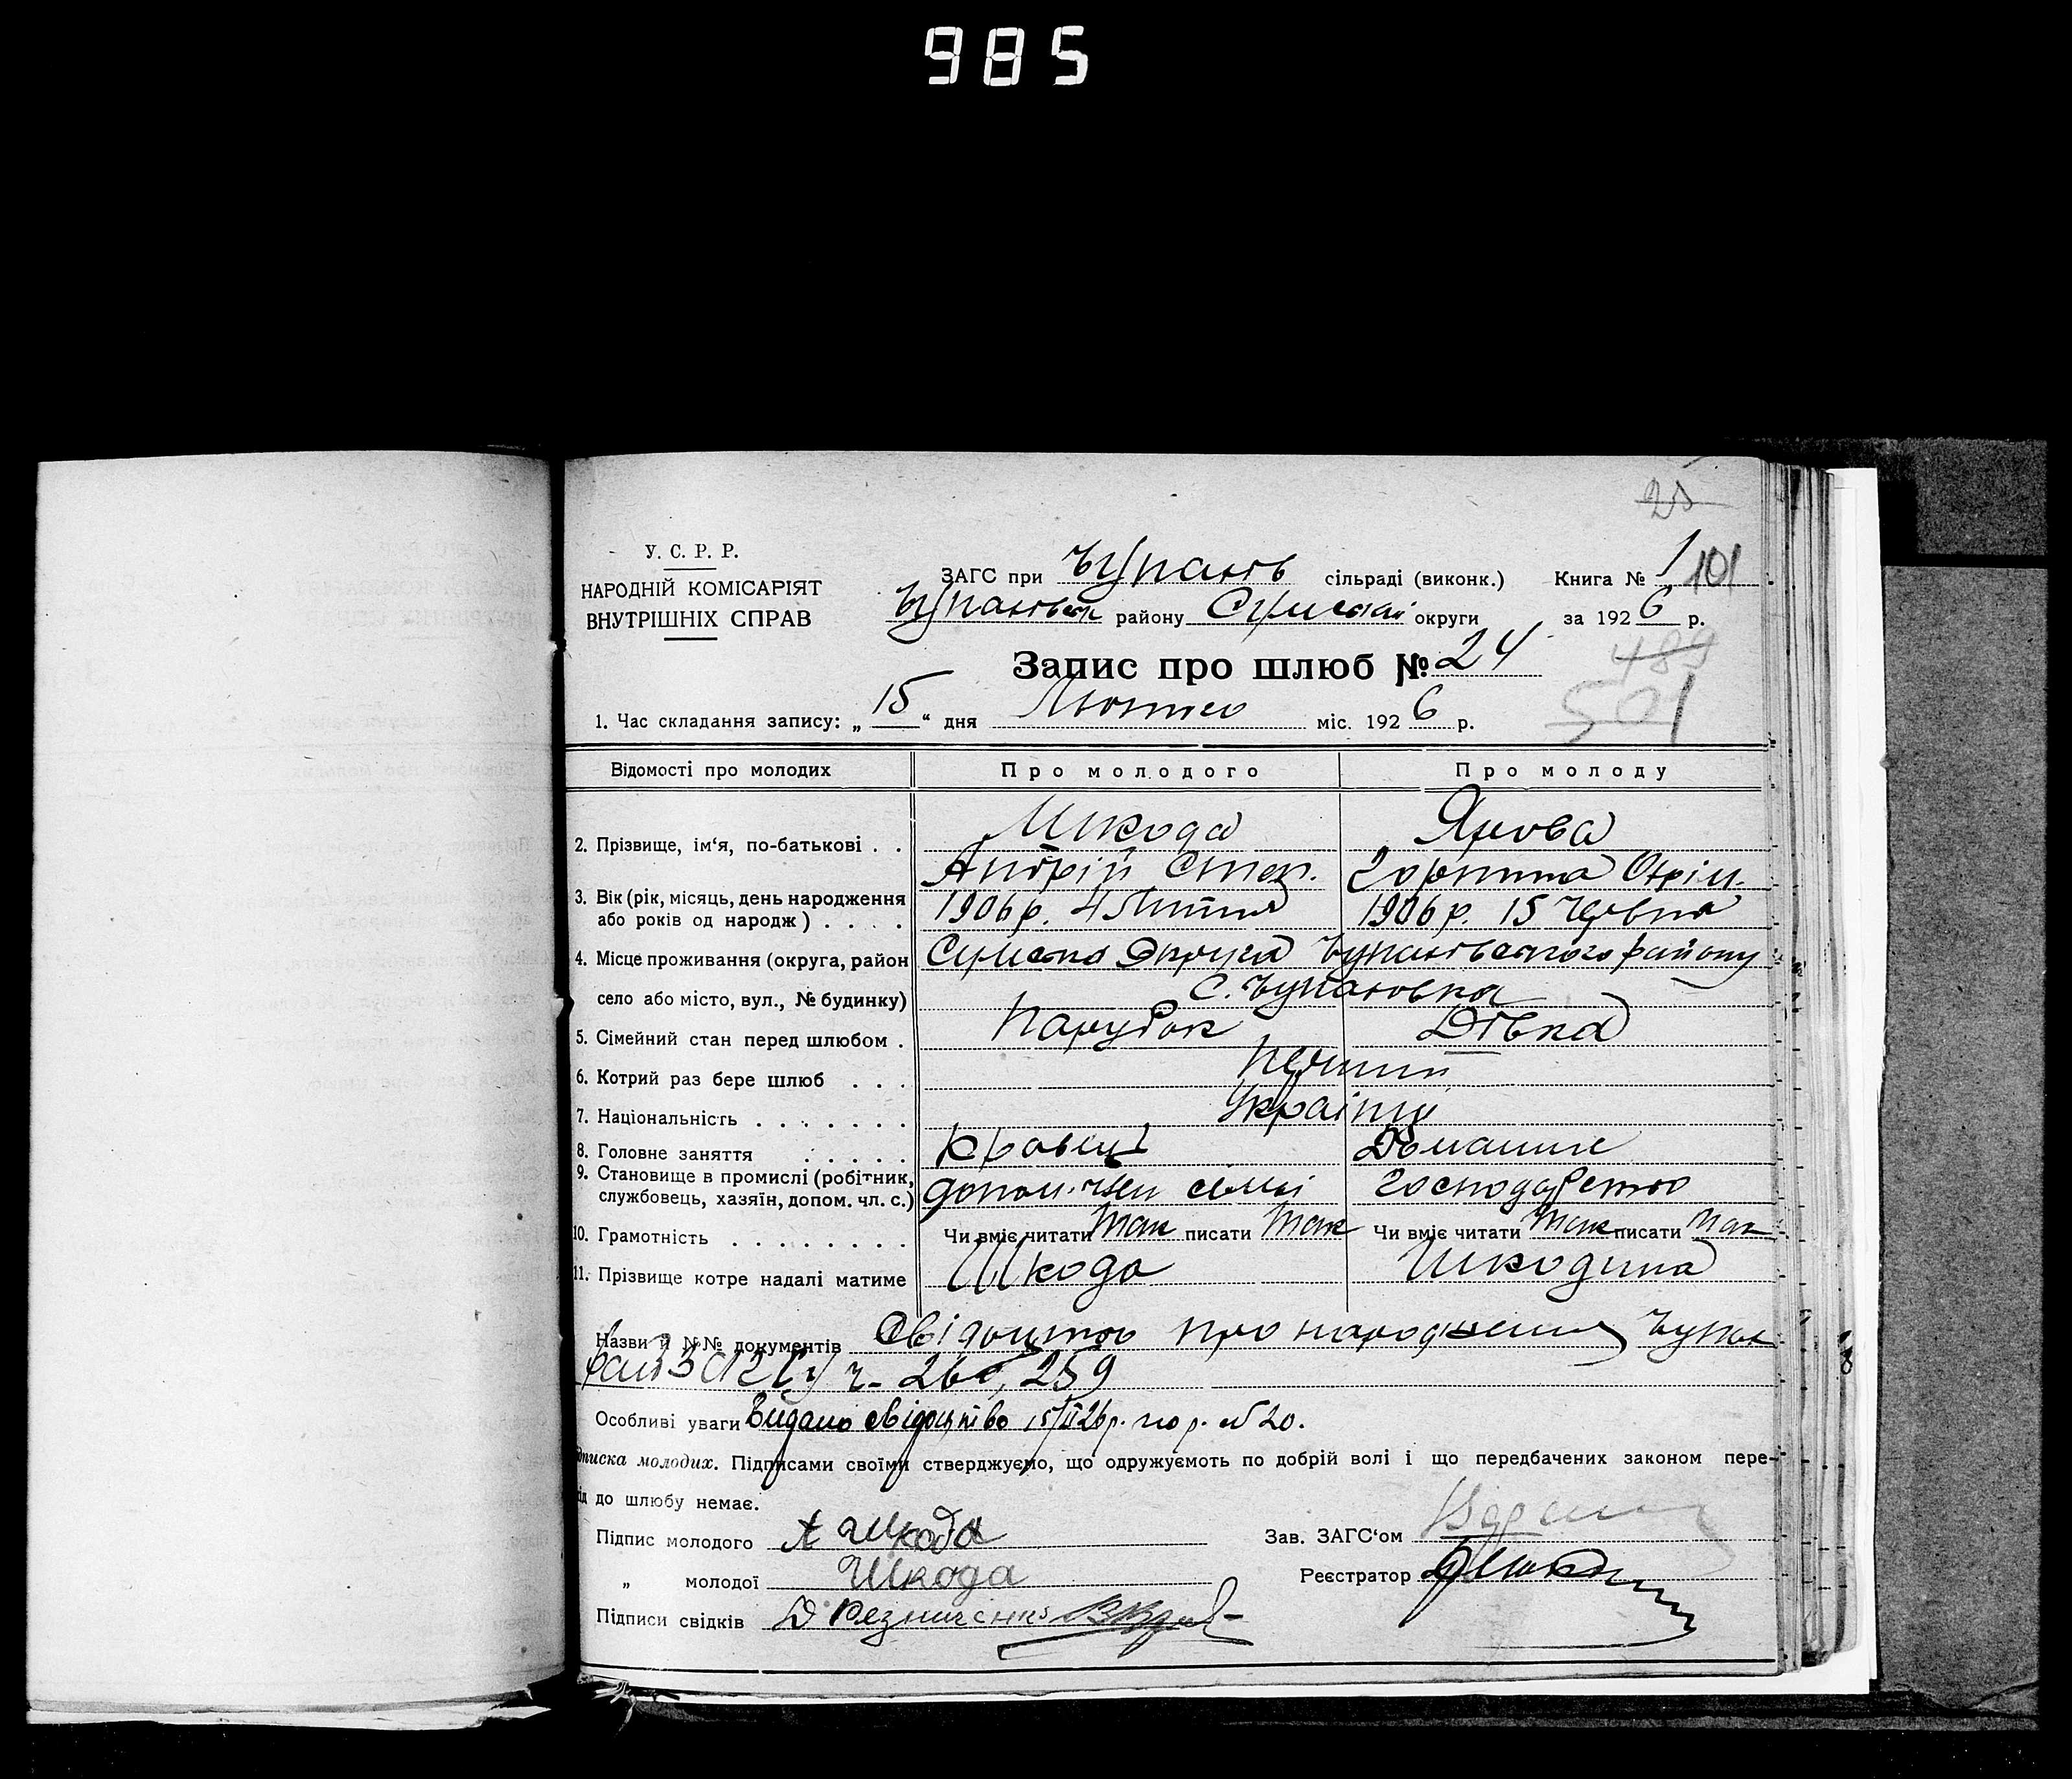 985
25
У. С. Р. Р.
НАРОДНІЙ КОМІСАРІЯТ
ВНУТРІШНІХ СПРАВ
ЗАГС при сільраді (виконк.) Книга № 1 101
району Сумської округи за 1926 р.
Запис про шлюб № 24
489
501
1. Час складання запису: „15“ дня Лютого міс. 1926 р.
Відомості про молодих Про молодого Про молоду
2. Прізвище, ім‘я, по-батькові . . Шкода Янова
Андрій Степ. Горпина Охрім.
3. Вік (рік, місяць, день народження 1906 р. 4 1906 р. 15 Червня
або років од народж) . . . .
4. Місце проживання (округа, район Сумська Округа району
село або місто, вул., № будинку) с.
5. Сімейний стан перед шлюбом . Парубок Дівка
6. Котрий раз бере шлюб . . . Перший
7. Національність . . . . . . . Українці
8. Головне заняття . . . . . Кравець Домашнє
9. Становище в промислі (робітник, допом. член сімї господарство
службовець, хазяїн, допом. чл. с.)
10. Грамотність . . . . . . . . Чи вміє читати так писати так Чи вміє читати так писати так
11. Прізвище котре надалі матиме Шкода Шкодина
Назви й №№ документів Свідоцтво про народження
ч. 260, 259
Особливі уваги Видано свідоцтво 15/II 26 р. № 20.
писка молодих. Підписами своїми стверджуємо, що одружуємоть по добрій волі і що передбачених законом пере-
ід до шлюбу немає.
Підпис молодого А Шкода Зав. ЗАГС‘ом
„ молодої Шкода Реєстратор
Підписи свідків Д Резниченко